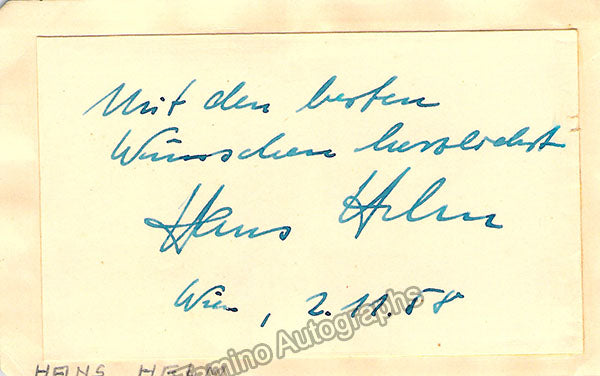 Mit den besten
Wünschen herzlichst
Hans Helm
Wien, 2.11.58
Tamino Autographs
HEINS HELM